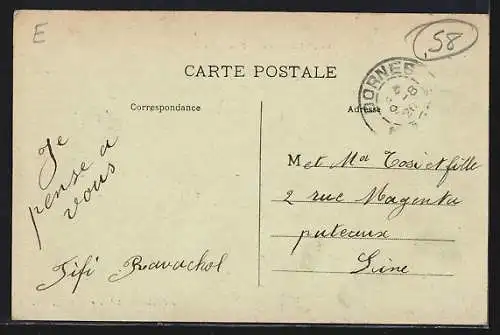 E
58
CARTE POSTALE
Correspondance
Adresse
DORNES
Je
pense a
vous
Fifi Ravachol
M et Md Tosi et fille
2 rue Magenta
puteaux
Seine